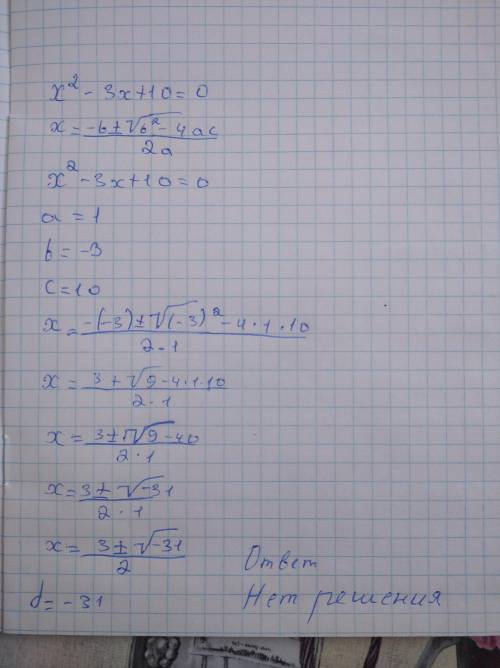 x² - 3x+10=0
x = (-b ± √(b² - 4ac)) / 2a
x² - 3x+10=0
a = 1
b = -3
c = 10
x = (-(-3) ± √((-3)² - 4·1·10)) / 2·1
x = (3 ± √(9-4·1·10)) / 2·1
x = (3 ± √(9-40)) / 2·1
x = (3 ± √(-31)) / 2·1
x = (3 ± √(-31)) / 2
d = -31
Ответ
Нет решения